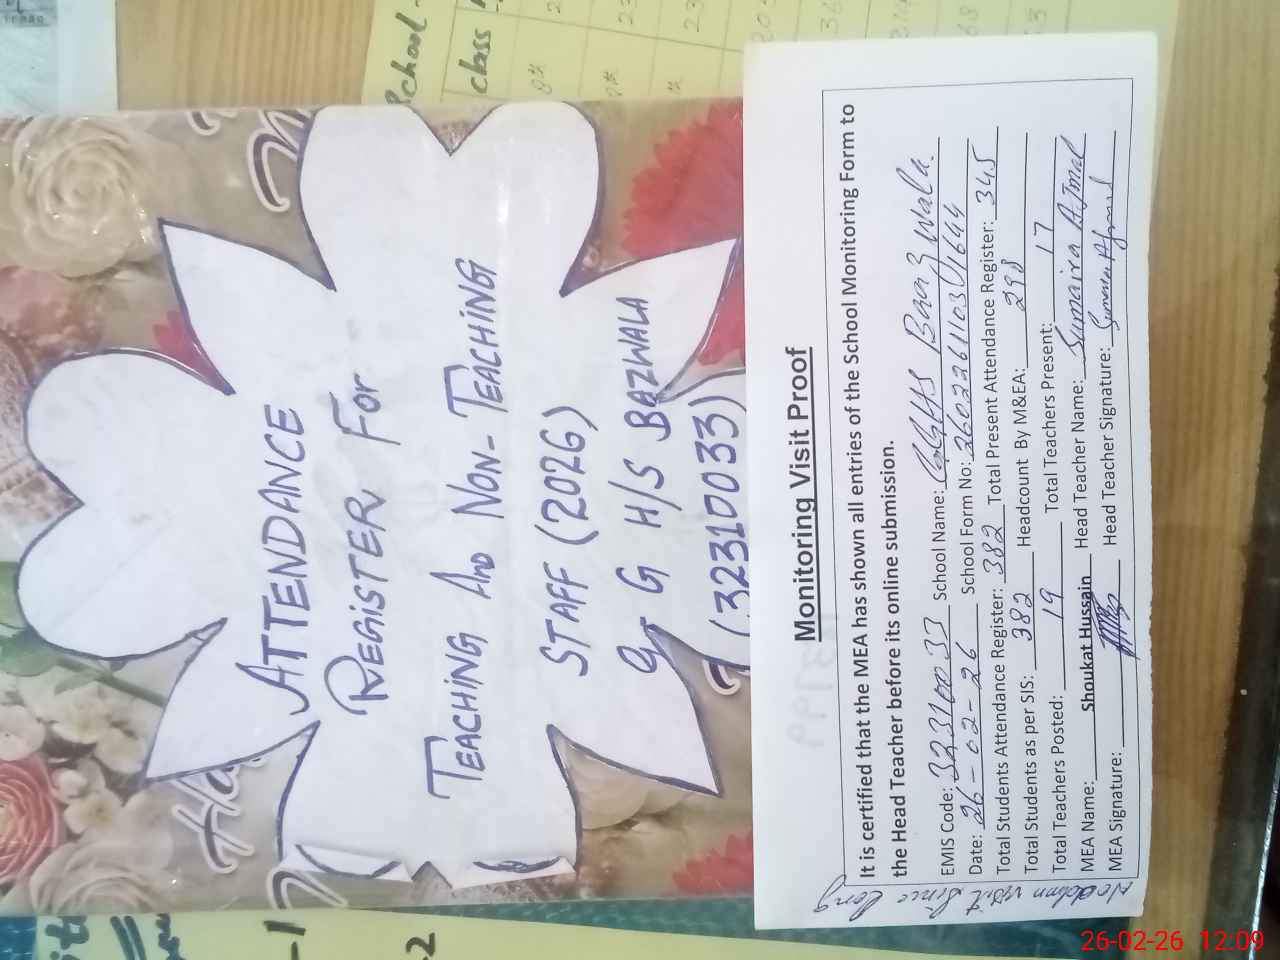 School
class
8th
ATTENDANCE
REGISTER FOR
TEACHING AND NON-TEACHING
STAFF (2026)
G G H/S BAZWALA
(32310033)
Monitoring Visit Proof
It is certified that the MEA has shown all entries of the School Monitoring Form to
the Head Teacher before its online submission.
EMIS Code: 32310033 School Name: GGHS Baaz wala.
Date: 26-02-26 School Form No:
Total Students Attendance Register: 382 Total Present Attendance Register: 345
Total Students as per SIS: 382 Headcount By M&EA: 298
Total Teachers Posted: 19 Total Teachers Present: 17
MEA Name: Shoukat Hussain Head Teacher Name: Sumaira Ajmal
MEA Signature: Head Teacher Signature:
visit Since long
-1
-2
26-02-26 12:09